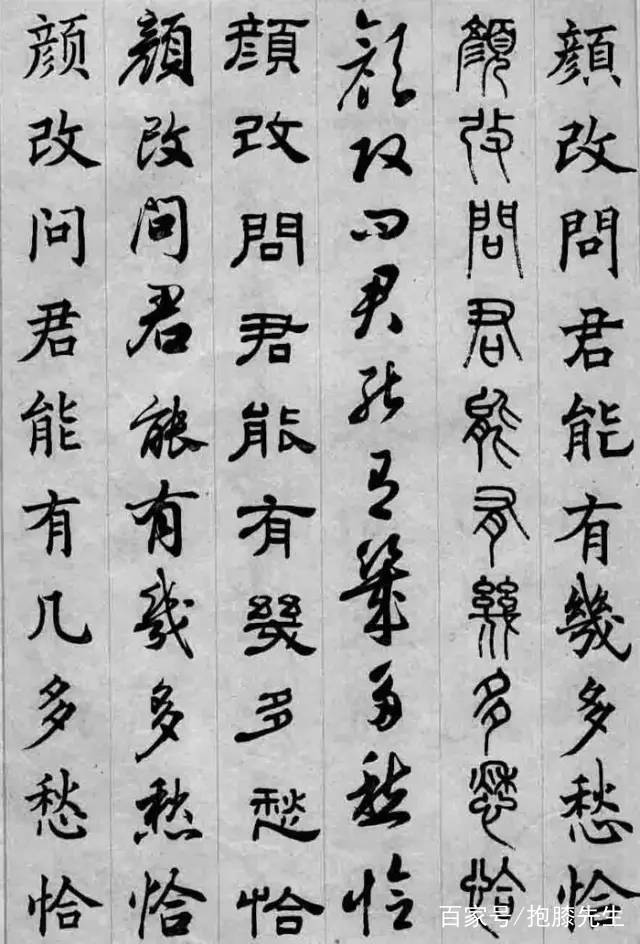 顏改問君能有幾多愁恰
顏改問君能有幾多愁恰
顏改問君能有幾多愁恰
顏改問君能有幾多愁恰
顏改問君能有幾多愁恰
颜改问君能有几多愁恰
百家号/抱膝先生